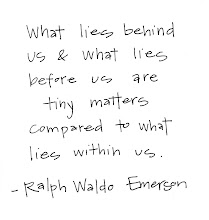 What lies behind
us & what lies
before us are
tiny matters
compared to what
lies within us.
- Ralph Waldo Emerson